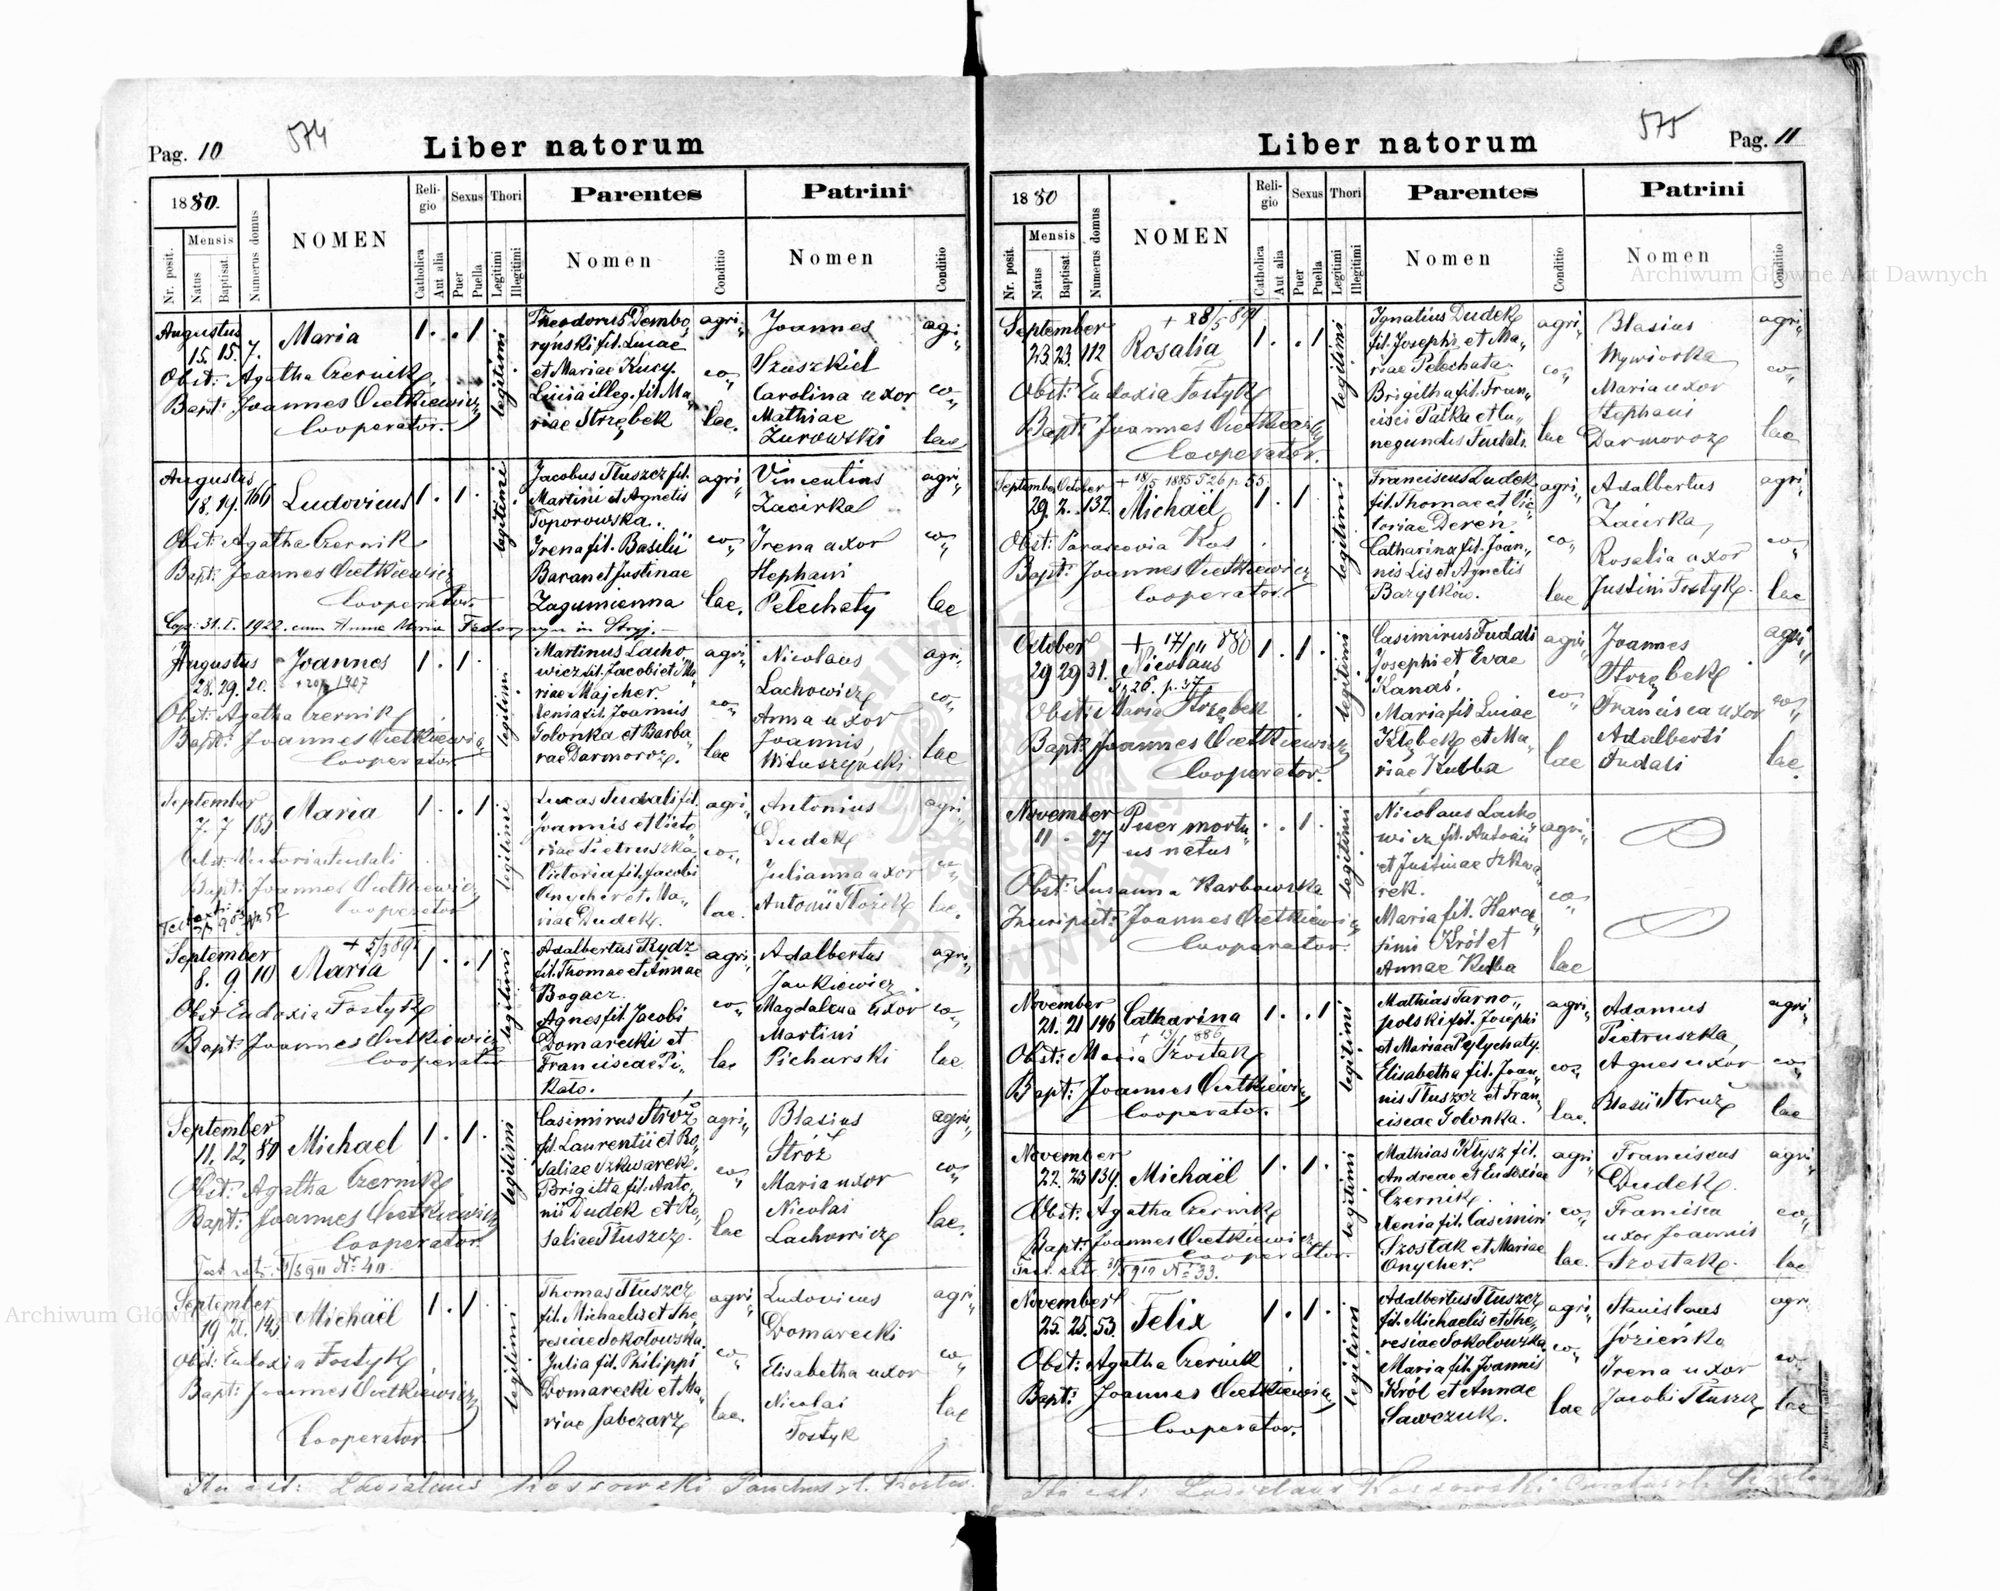 574
Pag. 10
Liber natorum
1880.
Nr. posit.
Mensis
Natus
Baptisat.
Numerus domus
NOMEN
Religio
Catholica
Aut alia
Sexus
Puer
Puella
Thori
Legitimi
Illegitimi
Parentes
Nomen
Conditio
Patrini
Nomen
Conditio
Augustus
15. 15. 7. Maria 1. . 1
Obst: Agatha Czernik
Bapt: Joannes Cietkiewicz
Cooperator.
legitimi
Theodorus Dembo
rynski fil. Lucae
et Mariae Kucy.
Lucia illeg. fil Ma„
riae Strzębek
agri„
co„
lae.
Joannes
Szuszkiel
Carolina uxor
Mathiae
Zurowski
agri„
co„
lae
Augustus
18. 19. 166 Ludovicus 1. 1.
Obst: Agatha Czernik
Bapt: Joannes Cietkiewicz
Cooperator.
Cop: 31. I. 1922. cum Anna Maria in Stryj.
legitimi
Jacobus Tłuszcz fil.
Martini et Agnetis
Toporowska.
Irena fil. Basilii
Baran et Justinae
Zagumienna
agri„
co„
lae.
Vincentius
Zacirka
Irena uxor
Stephani
Pelechaty
agri„
co„
lae
Augustus
28. 29. 20. Joannes 1. 1.
1907
Obst: Agatha Czernik
Bapt: Joannes Cietkiewicz
Cooperator
legitimi
Martinus Lacho
wicz fil. Jacobi et Ma„
riae Majcher.
Xenia fil. Joannis
Golonka et Barba„
rae Darmororz.
agri„
co„
lae
Nicolaus
Lachowicz
Anna uxor
Joannis
Wituszyński
agri„
co„
lae
September
7. 7 183 Maria 1. . 1
Obst: Victoria Fudali
Bapt: Joannes Cietkiewicz
Cooperator
legitimi
Lucas Fudali fil.
Joannis et Victo„
riae Pietruszka
Victoria fil. Jacobi
Onycher et Ma„
riae Dudek.
agri„
co„
lae.
Antonius
Dudek
Julianna uxor
Antonii Stożek
agri„
co„
lae.
September
+ 5/3 891
8. 9. 10 Maria 1. . 1
Obst Eudoxia Fostyk
Bapt: Joannes Cietkiewicz
Cooperator
legitimi
Adalbertus Rydz
fil. Thomae et Annae
Bogacz.
Agnes fil. Jacobi
Domarecki et
Franciscae Pi„
kato.
agri„
co„
lae
Adalbertus
Jankiewicz.
Magdalena uxor
Martini
Pichurski
agri„
co„
lae.
September
11. 12. 80 Michael 1. 1.
Obst: Agatha Czernik
Bapt: Joannes Cietkiewicz
Cooperator.
Nr 40.
legitimi
Casimirus Stróż
fil. Laurentii et Ro„
saliae Szkwarek.
Brigitta fil. Anto„
nii Dudek et Ro„
saliae Tłuszcz.
agri„
co„
lae
Blasius
Stróż
Maria uxor
Nicolai
Lachowicz
agri„
co„
lae.
September
19 21. 143 Michaël 1. 1.
Obst: Eudoxia Fostyk
Bapt: Joannes Cietkiewicz
Cooperator
legitimi
Thomas Tłuszcz
fil. Michaelis et The„
resiae Sokołowska.
Julia fil. Philippi
Domarecki et Ma„
riae Jabczarz
agri„
co„
lae.
Ludovicus
Domarecki
Elisabetha uxor
Nicolai
Fostyk
agri„
co„
lae
Ita est: Ladislaus Kossowski
575
Pag. 11
Liber natorum
1880
Nr. posit.
Mensis
Natus
Baptisat.
Numerus domus
NOMEN
Religio
Catholica
Aut alia
Sexus
Puer
Puella
Thori
Legitimi
Illegitimi
Parentes
Nomen
Conditio
Patrini
Nomen
Conditio
September
+ 28/5 891
23. 23. 112 Rosalia 1. . 1
Obst: Eudoxia Fostyk
Bapt: Joannes Cietkiewicz
Cooperator.
legitimi
Ignatius Dudek
fil. Josephi et Ma„
riae Pelechata.
Brigitha fil. Fran„
cisci Pałka et Cu„
negundis Fudali.
agri„
co„
lae
Blasius
Wywiorka
Maria uxor
Stephani
Darmoroz
agri„
co„
lae
September October
+ 18/5 1885 T 26 p. 55.
29. 2. 132. Michaël 1. 1.
Obst: Parascevia Kos
Bapt: Joannes Cietkiewicz
Cooperator.
legitimi
Franciscus Dudek
fil. Thomae et Vic„
toriae Dereń.
Catharina fil. Joan„
nis Lis et Agnetis
Barylków.
agri„
co„
lae
Adalbertus
Zacirka
Rosalia uxor
Justini Fostyk.
agri„
co„
lae
October
+ 17/11 880
29 29 31. Nicolaus 1. 1.
T. 26. p. 37
Obst: Maria Strzębek
Bapt: Joannes Cietkiewicz
Cooperator.
legitimi
Casimirus Fudali
Josephi et Evae
Kanas.
Maria fil Lucae
Klębek et Ma„
riae Kubba
agri„
co„
lae
Joannes
Strzębek
Francisca uxor
Adalberti
Fudali
agri„
co„
lae.
November
11 . 27 Puer mortu„ . . 1 .
us natus
Obst: Susanna Karbowska
Inscripsit: Joannes Cietkiewicz
Cooperator.
legitimi
Nicolaus Lacho„
wicz fil. Antonii
et Justinae Szkwa„
rek.
Maria fil. Hara„
simi Król et
Annae Kubba
agri„
co„
lae
November
21. 21 146 Catharina 1. . 1
+ 13/1 886
Obst: Maria Szostak
Bapt: Joannes Cietkiewicz
Cooperator.
legitimi
Mathias Tarno„
polski fil. Josephi
et Mariae Pełychaty.
Elisabetha fil. Joan„
nis Tłuszcz et Fran„
ciscae Golonka.
agri„
co„
lae.
Adamus
Pietruszka
Agnes uxor
Blasii Struż
agri„
co„
lae
November
22. 23 134. Michaël 1. 1.
Obst: Agatha Czernik
Bapt: Joannes Cietkiewicz
Cooperator.
No 33.
legitimi
Mathias Kłysz fil.
Andreae et Eudoxiae
Czernik.
Xenia fil. Casimiri
Szostak et Mariae
Onycher.
agri„
co„
lae.
Franciscus
Dudek.
Francisca
uxor Joannis
Szostak.
agri„
co„
lae
November
25. 25. 53. Felix 1. 1.
Obst: Agatha Czernik
Bapt: Joannes Cietkiewicz
Cooperator.
legitimi
Adalbertus Tłuszcz
fil. Michaelis et The„
resiae Sokołowska.
Maria fil. Joannis
Król et Annae
Sawczuk.
agri„
co„
lae
Stanislaus
Józieńko
Irena uxor
Jacobi Tłuszcz
agri„
co„
lae
Ita est: Ladislaus Kossowski
Archiwum Główne Akt Dawnych
Archiwum Główne Akt Dawnych